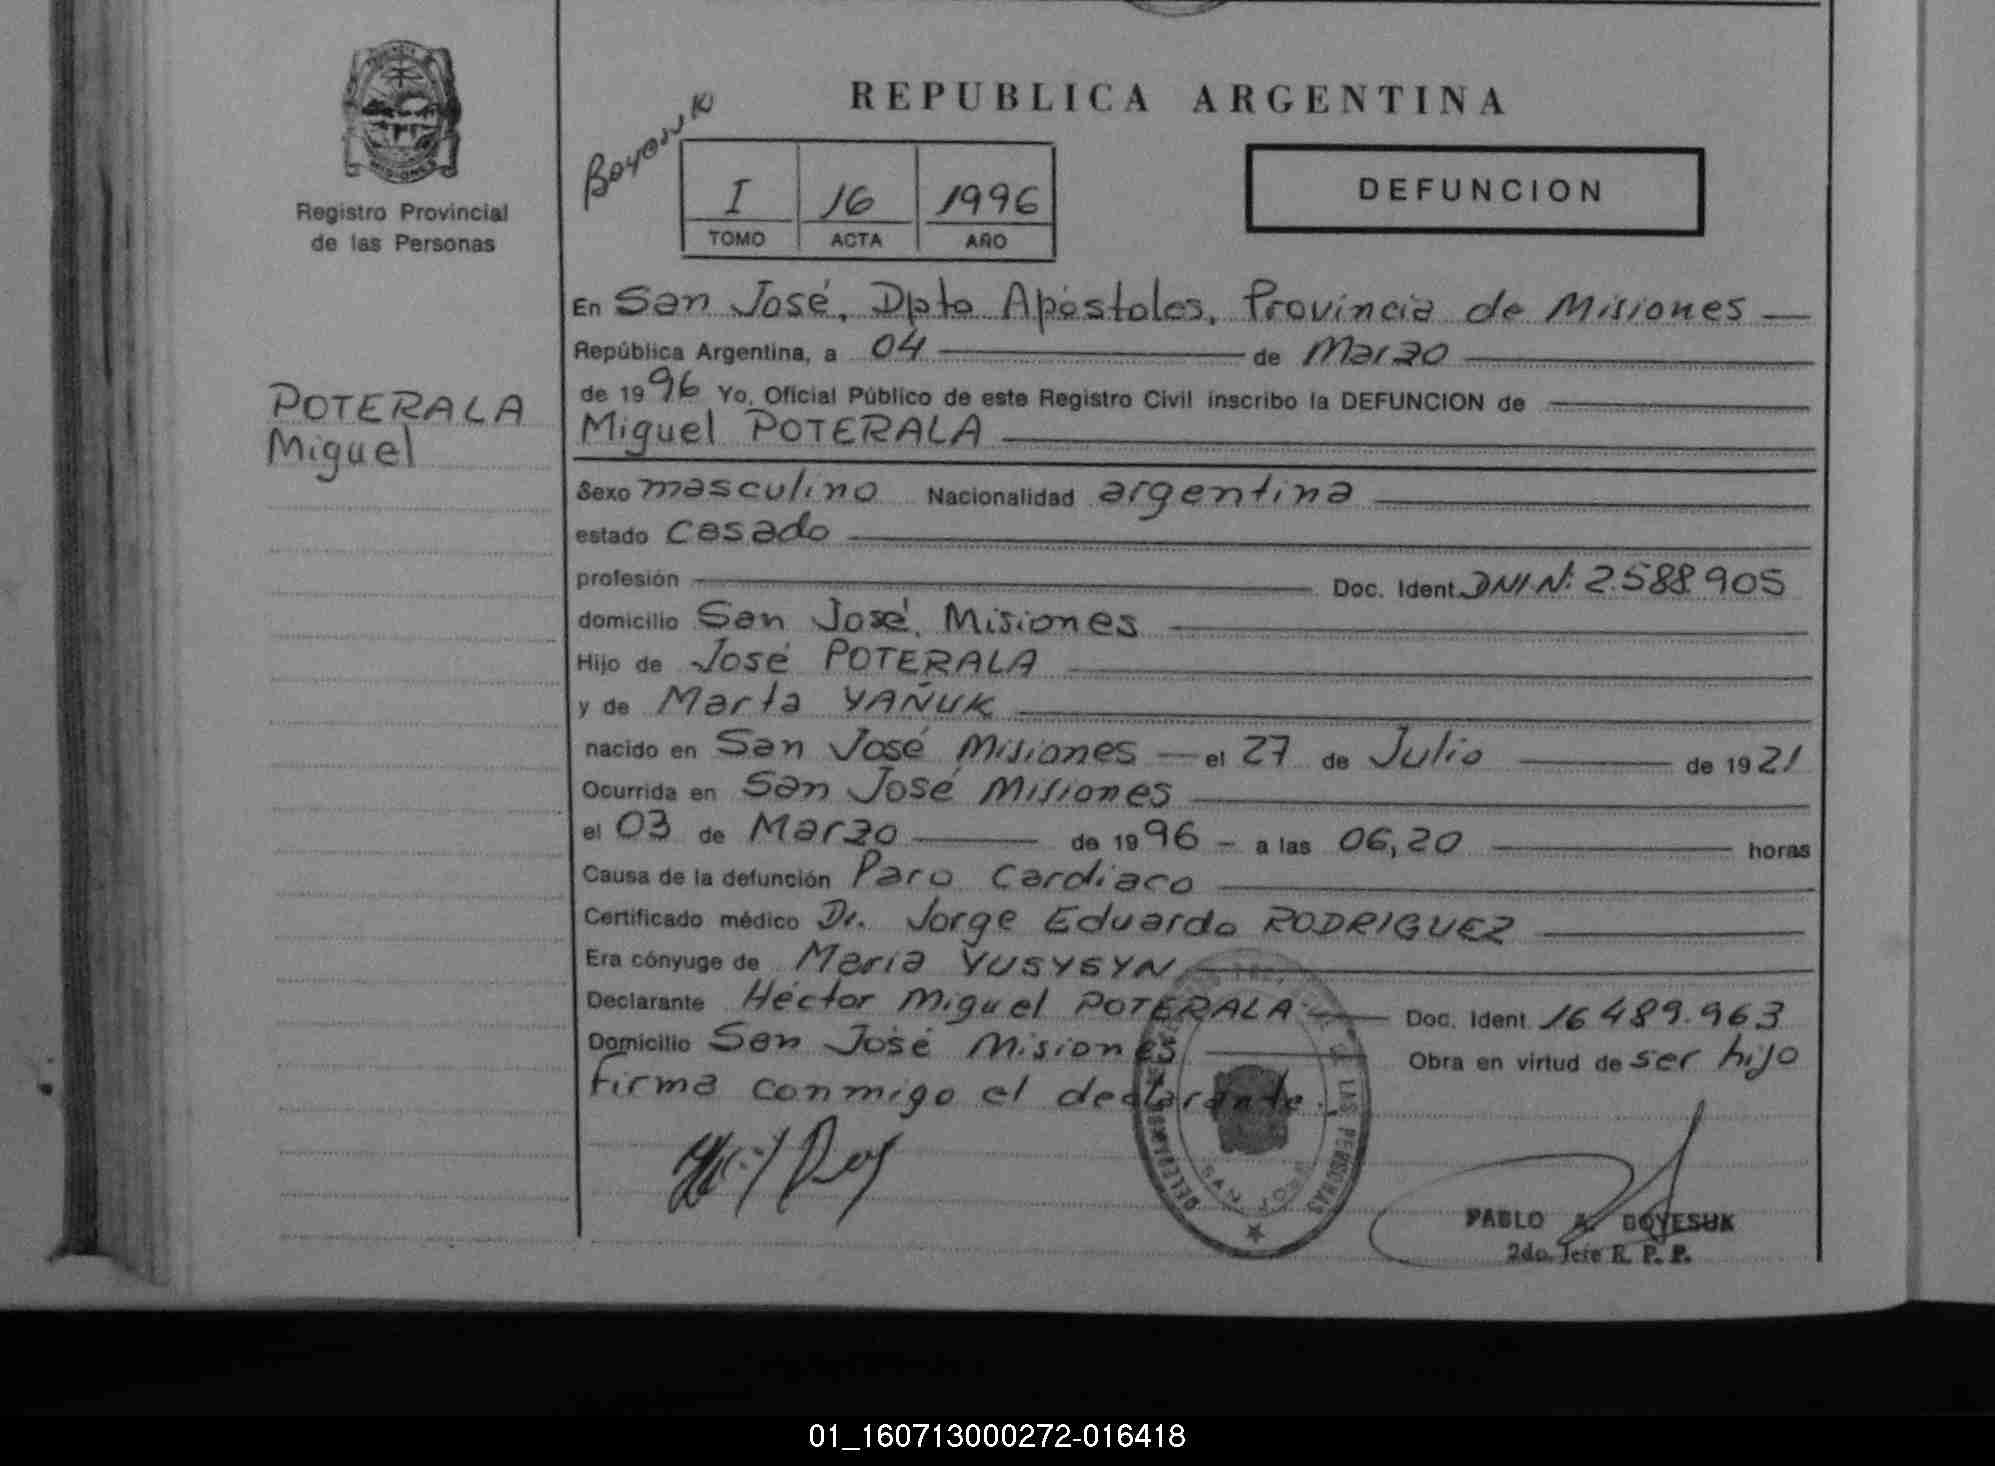 REPUBLICA ARGENTINA
Registro Provincial
de las Personas
Boyesuk
I 16 1996
TOMO ACTA AÑO
DEFUNCION
POTERALA
Miguel
En San José, Dpto Apóstoles, Provincia de Misiones
República Argentina, a 04 de Marzo
de 1996 Yo, Oficial Público de este Registro Civil inscribo la DEFUNCION de
Miguel POTERALA
Sexo masculino Nacionalidad argentina
estado casado
profesión Doc. Ident. DNI N: 2.588.905
domicilio San José, Misiones
Hijo de José POTERALA
y de Marta YAÑUK
nacido en San José Misiones el 27 de Julio de 1921
Ocurrida en San José Misiones
el 03 de Marzo de 1996 - a las 06,20 horas
Causa de la defunción Paro Cardiaco
Certificado médico Dr. Jorge Eduardo RODRIGUEZ
Era cónyuge de Maria YUSYSYN
Declarante Héctor Miguel POTERALA Doc. Ident. 16489.963
Domicilio San José Misiones Obra en virtud de ser hijo
firma conmigo el declarante.
LAS PERSONAS
SAN JOSE
PABLO A. BOYESUK
2do. Jefe R. P. P.
01_160713000272-016418